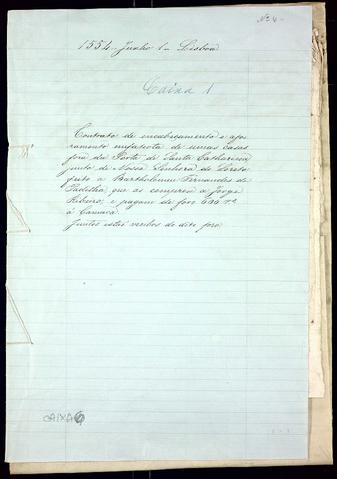 Nº 4
1554 - Junho 1 - Lisboa
Caixa 1
Contrato de encabeçamento e afo-
ramento emfateota de umas casas
fora da Porta de Santa Catharina
junto de Nossa Senhora do Loreto
feito a Bartholomeu Fernandes de
Padilha, que as comprou a Jorge
Ribeiro, e pagam de foro 600 r.s
á Camara.
Juntos estão recibos do dito foro
CAIXA